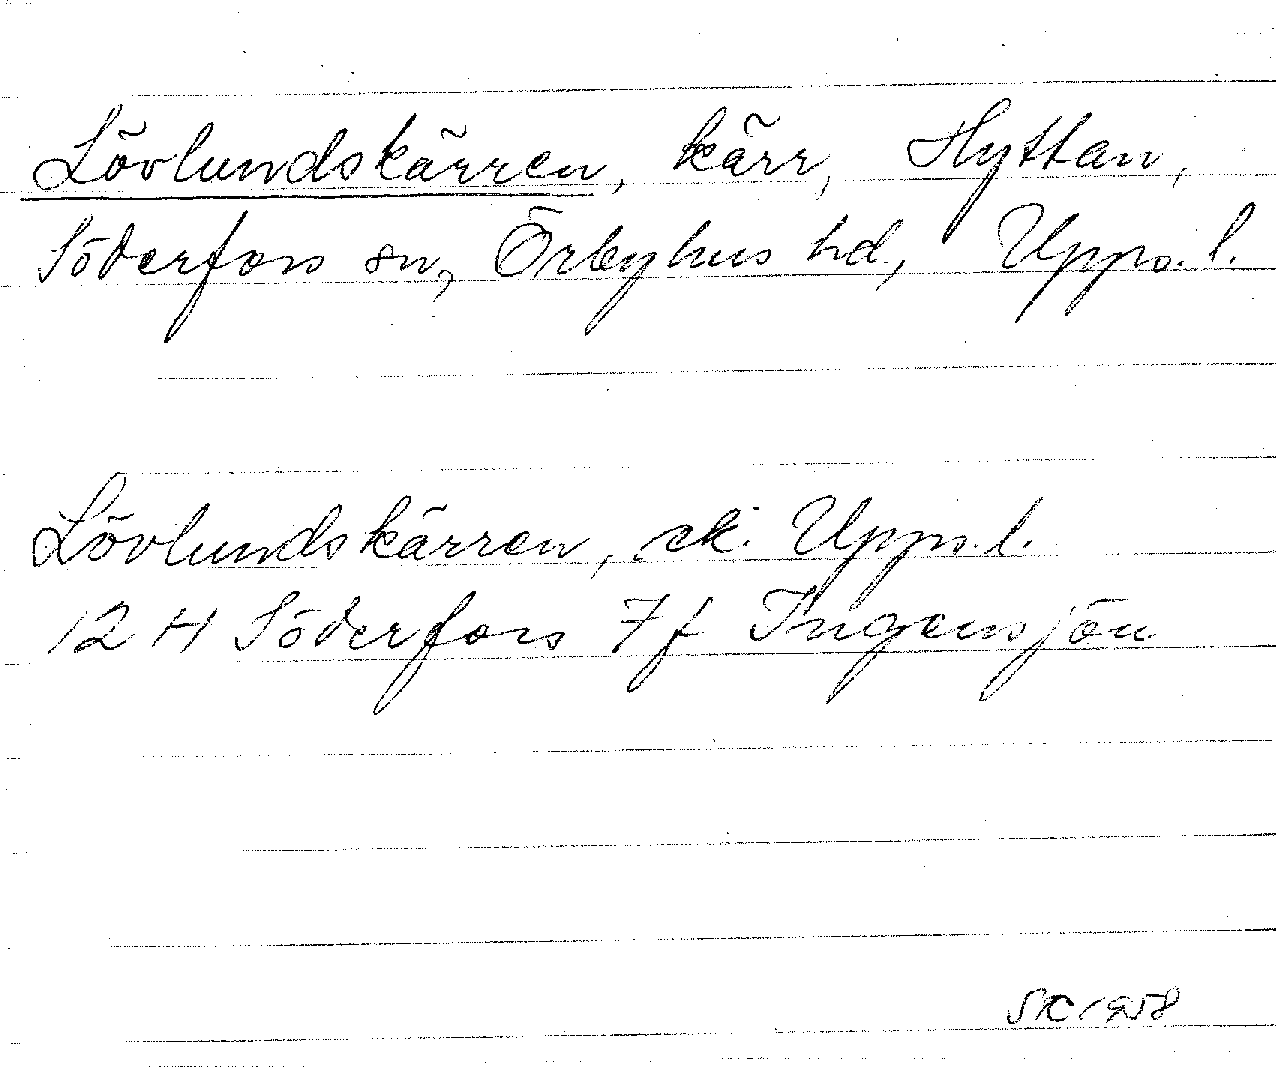 Lövlundskärren, kärr, Hyttan,
Söderfors sn, Örbyhus hd, Upps. l.
Lövlundskärren, ek. Upps. l.
12 H Söderfors 7 f Ingensjön
1958